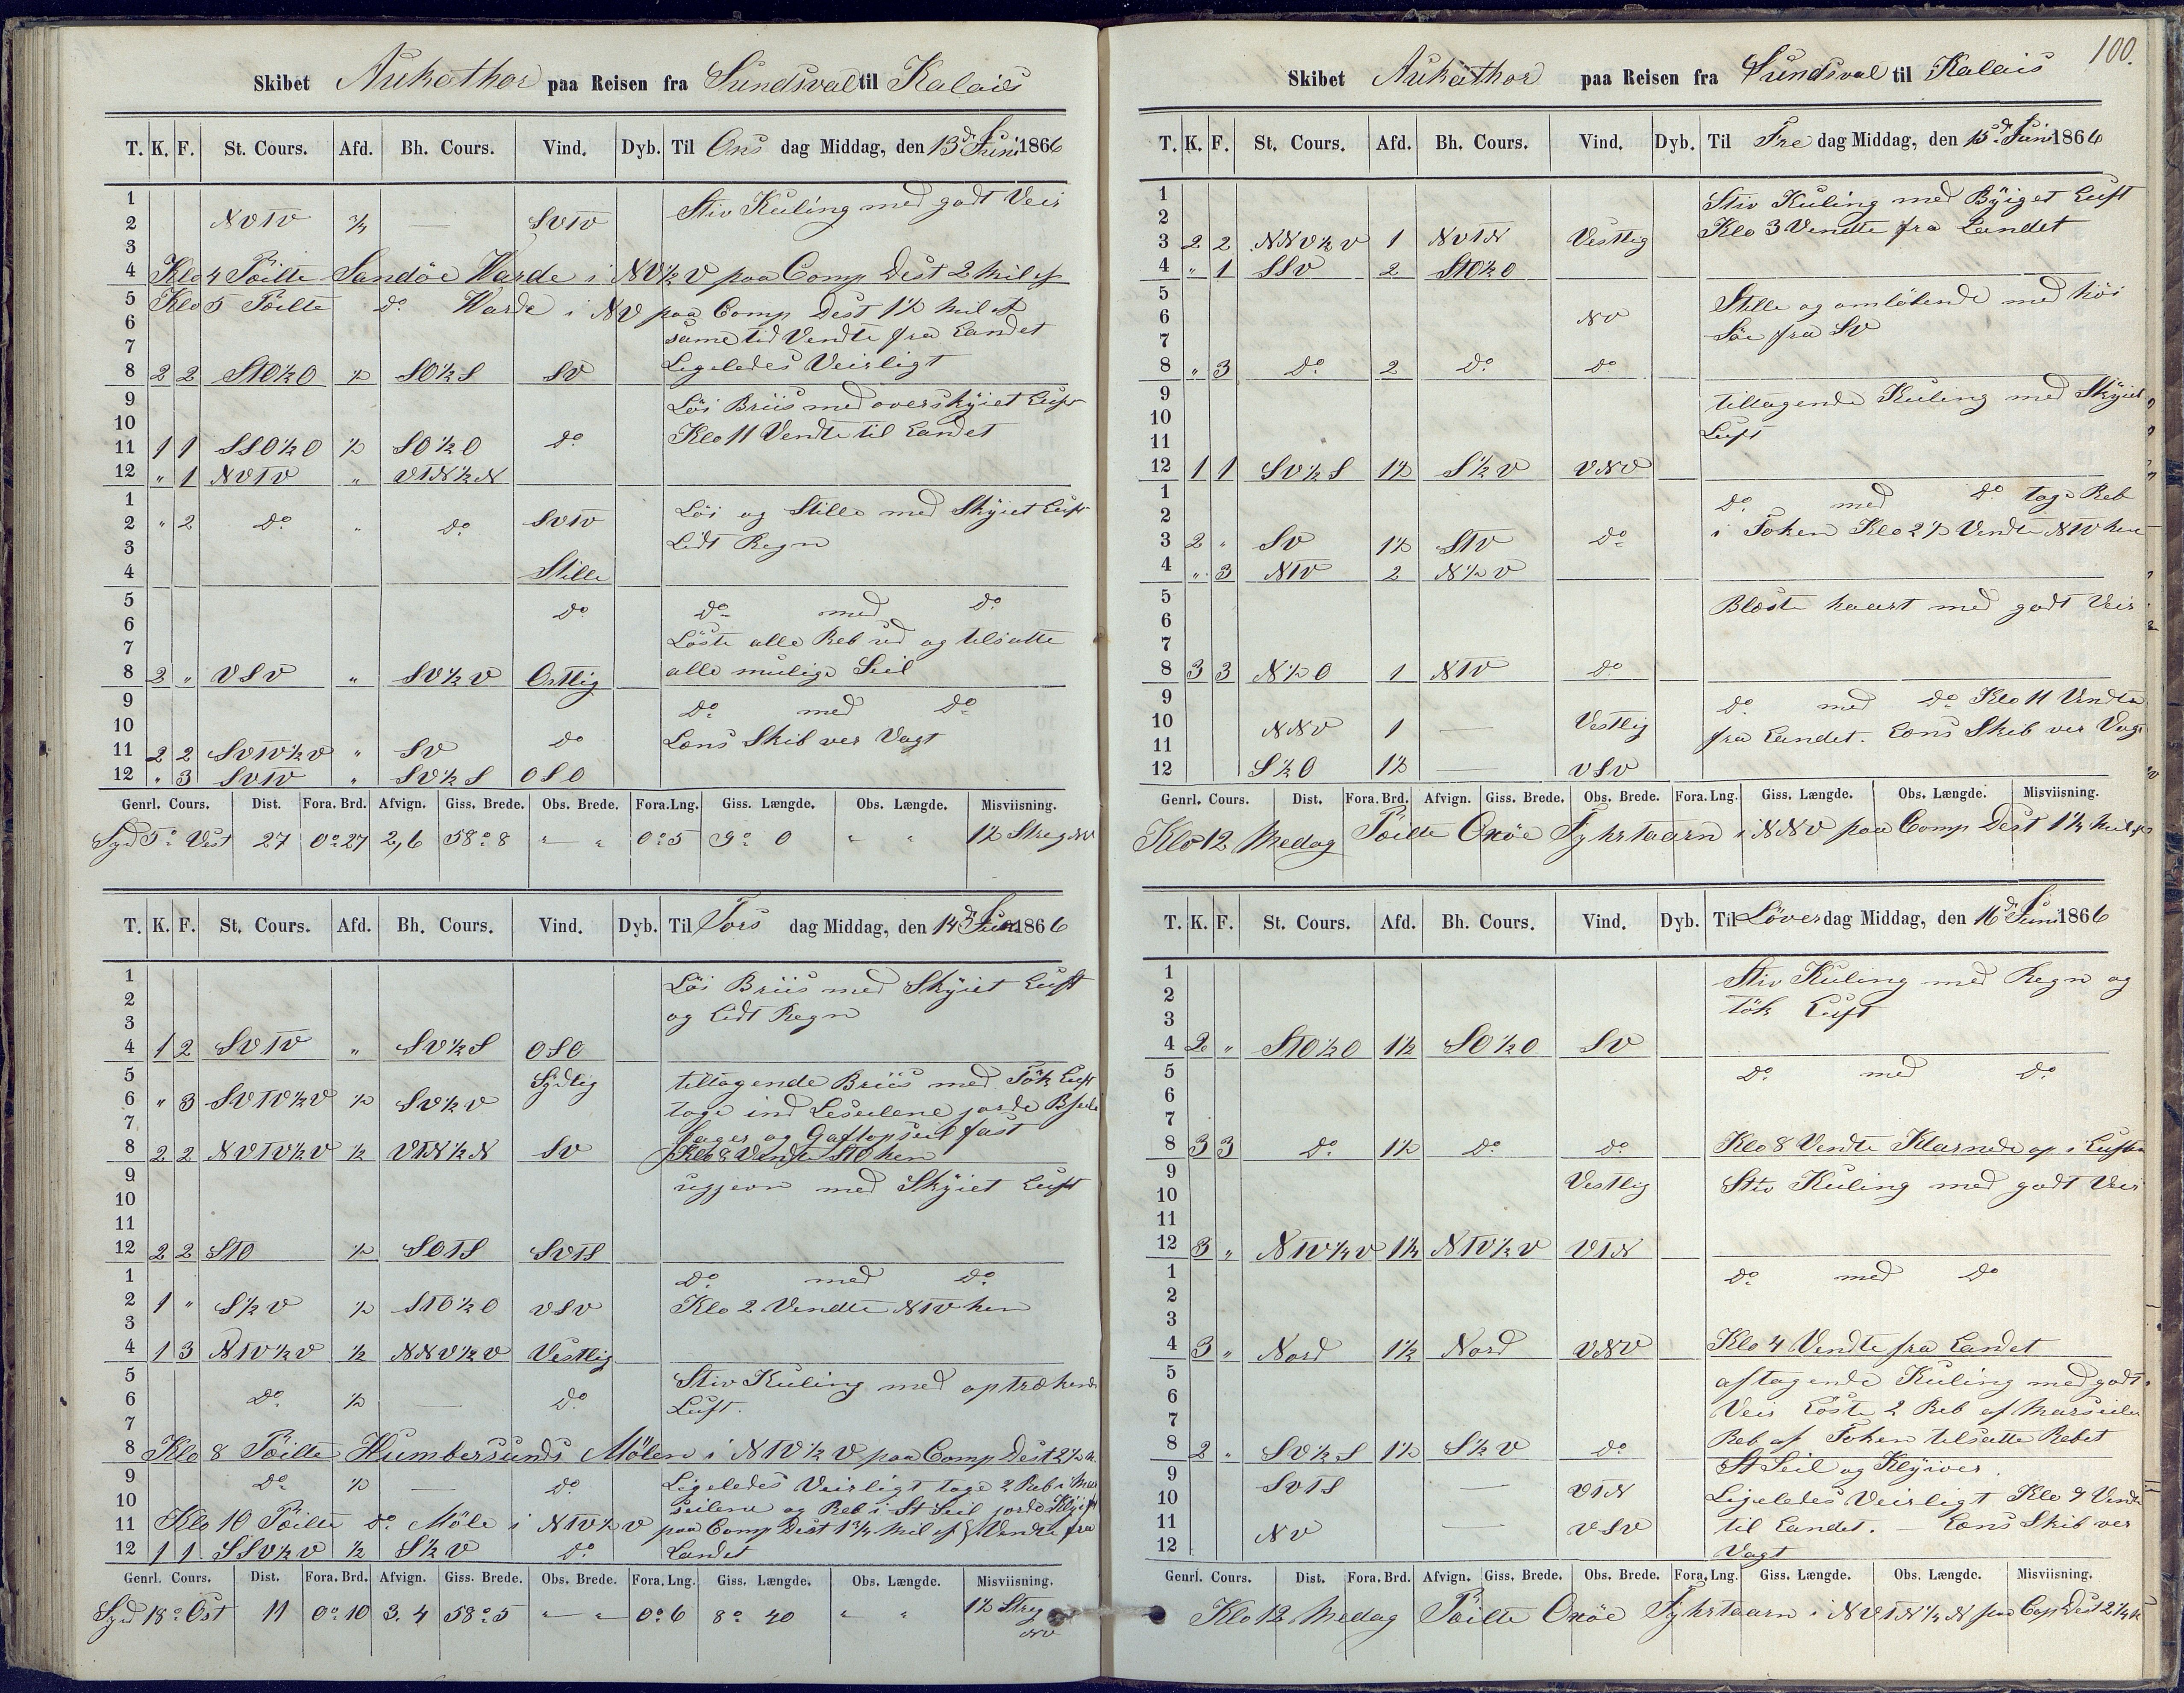 Skibet Aukathor paa Reisen fra Sundsval til Kalais
T. K. F. St. Cours. Afd. Bh. Cours. Vind. Dyb. Til Ons dag Middag, den 13d Juni 1866
1 Stiv Kuling med godt Veir
2 NVTV ¾ — SVTV
3
4 Klo 4 Pöilte Sandöe Warde i NV½V paa Comp Dest 2 Mil af
5 Klo 5 Pöilte do Warde i NV paa Comp Dest 1½ Mil af
6 same tid Vendte fra Landet
7 Ligeledes Veirligt
8 2 2 STO½O ½ SO½S SV
9 Löi Briis med overskÿiet Luft
10 Klo 11 Vendte til Landet
11 1 1 SSO½O ½ SO½O do
12 " 1 NVTV " VTN½N
1 Löi og Stille med Skÿiet Luft
2 " 2 do " do SVTV
3 Lidt Regn
4 Stille
5 do do med do
6 Löste alle Reb ud og tilsatte
7 alle mulige Seil
8 2 " VSV " SV½V Ostlig
9 do med do
10 Læns Skib ver Vagt
11 2 2 SVTV½V " SV do
12 " 3 SVTV " SV½S OSO
Genrl. Cours. Dist. Fora. Brd. Afvign. Giss. Brede. Obs. Brede. Fora. Lng. Giss. Længde. Obs. Længde. Misviisning.
Syd 5° Vest 27 0°27 2,6 58°8 " — " 0°5 9° 0 " " 1½ Streg NV
T. K. F. St. Cours. Afd. Bh. Cours. Vind. Dyb. Til Tors dag Middag, den 14d Juni 1866
1 Löi Briis med Skÿiet Luft
2 og Lidt Regn
3
4 1 2 SVTV " SV½S OSO
5 Sydlig tiltagende Briis med Tök Luft
6 " 3 SVTV½V ½ SV½V toge ind Leseilene jorde
7 og Gaftopseil fast
8 2 2 NVTV½V ½ VTN½N SV Klo 8 Vendte STO hen
9 ugjevn med Skÿiet Luft
10
11
12 2 2 STO ½ SOTS SVTS
1 do med do
2 1 " S½V ½ STO½O VSV Klo 2 Vendte NTV hen
3
4 1 3 NTV½V ½ NNV½V Vestlig
5 Stiv Kuling med optrækende
6 do ½ — do Luft.
7
8 Klo 8 Pöilte Humbersunds Mölen i NTV½V paa Comp Dest 2½ M.
9 do ½ — do Ligeledes Veirligt toge 2 Reb i Mers
10 seilene og Reb i St Seil jorde
11 Klo 10 Pöilte do Möle i NTV½V paa Comp Dest 1¾ Mil af Vendte fra
12 1 1 SSV½V ½ S½V do Landet
Genrl. Cours. Dist. Fora. Brd. Afvign. Giss. Brede. Obs. Brede. Fora. Lng. Giss. Længde. Obs. Længde. Misviisning.
Syd 18° Ost 11 0°10 3.4 58°5 " — " 0°6 8° 40 " " 1½ Streg
NV
100.
Skibet Aukathor paa Reisen fra Sundsval til Kalais
T. K. F. St. Cours. Afd. Bh. Cours. Vind. Dyb. Til Fre dag Middag, den 15d Juni 1866
1 Stiv Kuling med Bÿiget Luft
2 Klo 3 Vendte fra Landet
3 2 2 NNV½V 1 NVTN Vestlig
4 " 1 SSV 2 STO½O
5 Stille og omlöbende med höi
6 NV Söe fra SV
7
8 " 3 do 2 do do
9 tiltagende Kuling med Skÿiet
10 Luft
11
12 1 1 SV½S 1½ S½V VNV
1 do med do toge Reb
2 i Foken Klo 2½ Vendte NTV hen
3 2 " SV 1½ STV do
4 " 3 NTV 2 N½V
5 Blæste haart med godt Veir
6
7
8 3 3 N½O 1 NTV do
9 do med do Klo 11 Vendte
10 NNV 1 — Vestlig fra Landet. Læns Skib ver Vagt
11
12 S½O 1½ — VSV
Genrl. Cours. Dist. Fora. Brd. Afvign. Giss. Brede. Obs. Brede. Fora. Lng. Giss. Længde. Obs. Længde. Misviisning.
Klo 12 Medag Pöilte Oxöe Fyhrtaarn i NNV paa Comp Dest 1¼ Mil af
T. K. F. St. Cours. Afd. Bh. Cours. Vind. Dyb. Til Löver dag Middag, den 16d Juni 1866
1 Stiv Kuling med Regn og
2 tök Luft
3
4 2 " STO½O 1½ SO½O SV
5 do med do
6
7
8 3 3 do 1½ do do Klo 8 Vendte Klarnede op i Luften
9 Vestlig Stiv Kuling med godt Veir
10
11
12 3 " NTV½V 1½ NTV½V VTN
1 do med do
2
3
4 3 " Nord 1½ Nord VNV Klo 4 Vendte fra Landet
5 aftagende Kuling med godt
6 Veir Löste 2 Reb af Merseilene
7 Reb af Foken tilsatte Rebet
8 2 " SV½S 1½ S½V do St Seil og Klÿiver.
9 SVTS — VTN Ligeledes Veirligt Klo 9 Vendte
10 til Landet. — Læns Skib ver
11 NV — VSV Vagt
12
Genrl. Cours. Dist. Fora. Brd. Afvign. Giss. Brede. Obs. Brede. Fora. Lng. Giss. Længde. Obs. Længde. Misviisning.
Klo 12 Medag Pöilte Oxöe Fyhrtaarn i NVTN¼N paa Cop Dest 2¼